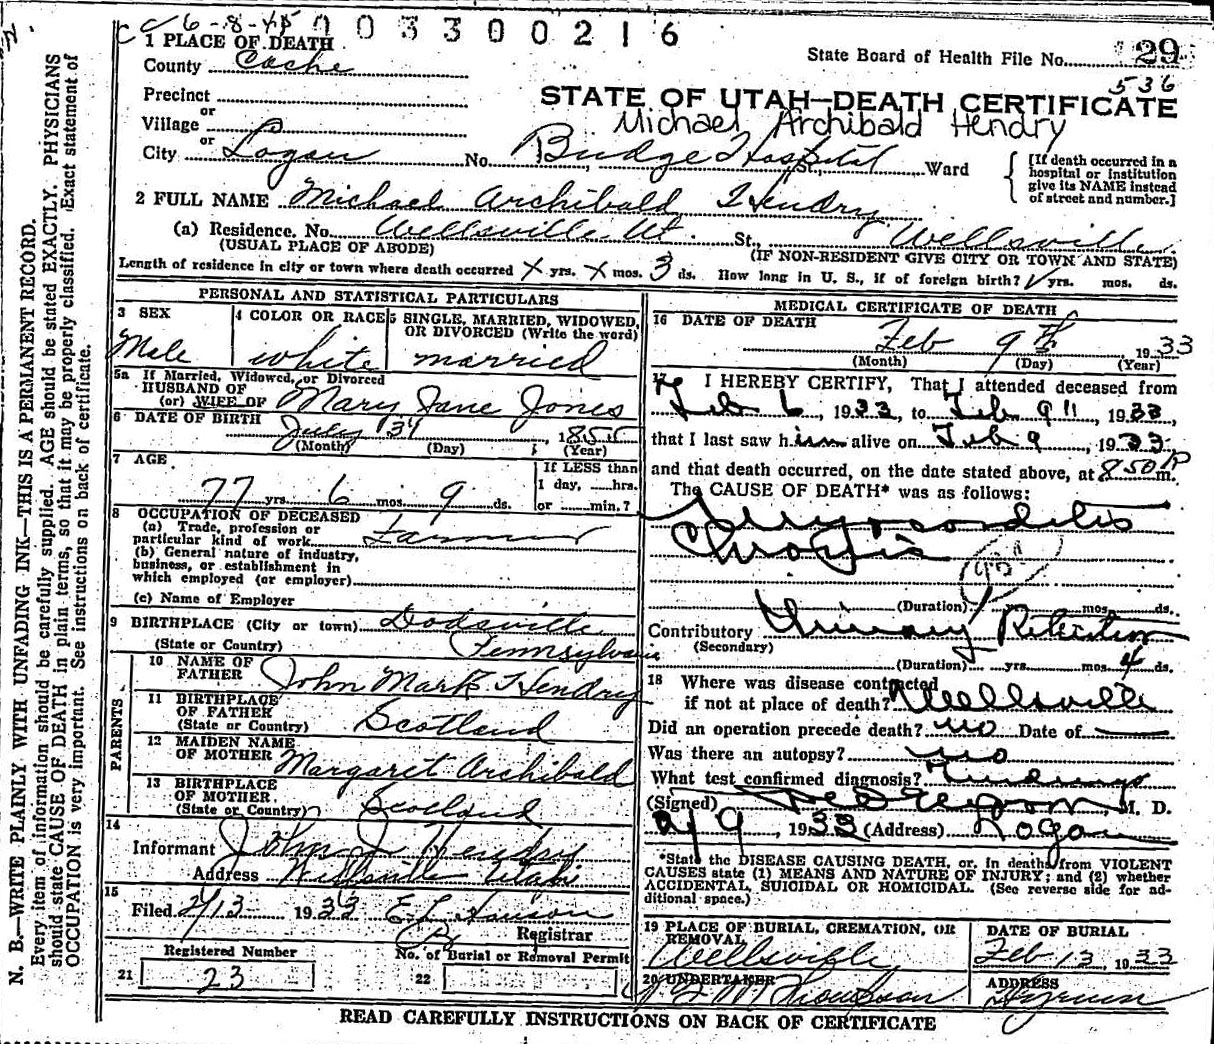 6-8-45 003300216
1 PLACE OF DEATH
State Board of Health File No. 29
County Cache
536
Precinct
or
STATE OF UTAH—DEATH CERTIFICATE
Village
Michael Archibald Hendry
or
City Logan No. Budge Hospital St., Ward
[If death occurred in a hospital or institution give its NAME instead of street and number.]
2 FULL NAME Michael Archibald Hendry
(a) Residence. No. Wellsville Ut. St., Wellsville
(USUAL PLACE OF ABODE) (IF NON-RESIDENT GIVE CITY OR TOWN AND STATE)
Length of residence in city or town where death occurred x yrs. x mos. 3 ds. How long in U. S., if of foreign birth? yrs. mos. ds.
PERSONAL AND STATISTICAL PARTICULARS
3 SEX 4 COLOR OR RACE 5 SINGLE, MARRIED, WIDOWED, OR DIVORCED (Write the word)
Male white married
5a If Married, Widowed, or Divorced
HUSBAND OF
(or) WIFE OF Mary Jane Jones
6 DATE OF BIRTH July 31, 1855
(Month) (Day) (Year)
7 AGE
If LESS than
1 day, hrs.
77 yrs. 6 mos. 9 ds. or min.?
8 OCCUPATION OF DECEASED
(a) Trade, profession or
particular kind of work Farmer
(b) General nature of industry,
business, or establishment in
which employed (or employer)
(c) Name of Employer
9 BIRTHPLACE (City or town) Dodsville
(State or Country) Pennsylvania
PARENTS
10 NAME OF
FATHER John Mark Hendry
11 BIRTHPLACE
OF FATHER
(State or Country) Scotland
12 MAIDEN NAME
OF MOTHER Margaret Archibald
13 BIRTHPLACE
OF MOTHER.
(State or Country) Scotland
14
Informant John J Hendry
Address Wellsville Utah
15
Filed 2/13 1933 E. L. Hanson
Registrar
Registered Number
No. of Burial or Removal Permit
21 23 22
MEDICAL CERTIFICATE OF DEATH
16 DATE OF DEATH Feb 9th 1933
(Month) (Day) (Year)
17 I HEREBY CERTIFY, That I attended deceased from
Feb 6, 1933, to Feb 9, 1933,
that I last saw him alive on Feb 9, 1933
and that death occurred, on the date stated above, at 8.50 P m.
The CAUSE OF DEATH* was as follows:
Myocarditis
Chronic
(Duration) mos. ds.
Contributory Urinary Retention
(Secondary)
(Duration) yrs. mos. 4 ds.
18 Where was disease contracted
if not at place of death? Wellsville
Did an operation precede death? no Date of
Was there an autopsy? no
What test confirmed diagnosis? Findings
(Signed) M. D.
2/9, 1933 (Address) Logan
*State the DISEASE CAUSING DEATH, or, in deaths from VIOLENT
CAUSES state (1) MEANS AND NATURE OF INJURY; and (2) whether
ACCIDENTAL, SUICIDAL OR HOMICIDAL. (See reverse side for ad-
ditional space.)
19 PLACE OF BURIAL, CREMATION, OR REMOVAL DATE OF BURIAL
Wellsville Feb 13, 1933
20 UNDERTAKER ADDRESS
Thompson Hyrum
READ CAREFULLY INSTRUCTIONS ON BACK OF CERTIFICATE
N. B.—WRITE PLAINLY WITH UNFADING INK—THIS IS A PERMANENT RECORD.
Every item of information should be carefully supplied. AGE should be stated EXACTLY. PHYSICIANS
should state CAUSE OF DEATH in plain terms, so that it may be properly classified. Exact statement of
OCCUPATION is very important. See instructions on back of certificate.